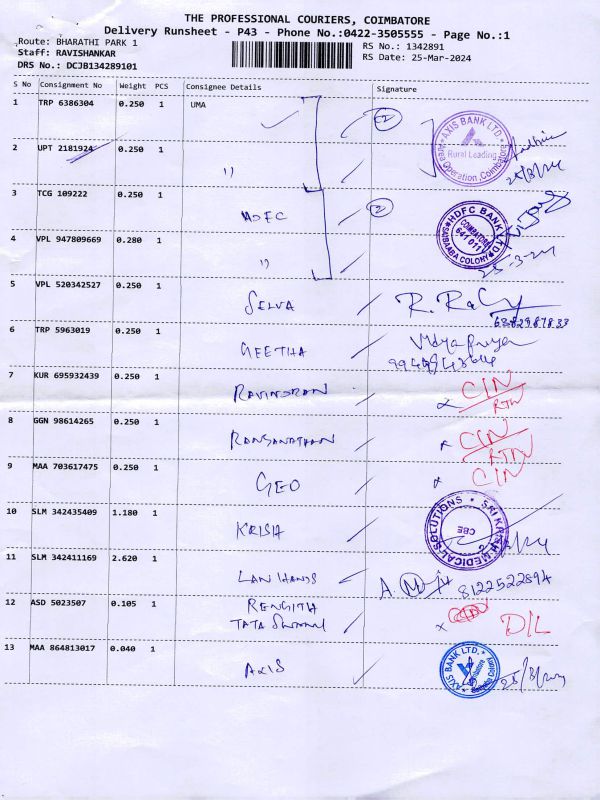 THE PROFESSIONAL COURIERS, COIMBATORE
Delivery Runsheet - P43 - Phone No.:0422-3505555 - Page No.:1
Route: BHARATHI PARK 1
RS No.: 1342891
Staff: RAVISHANKAR
RS Date: 25-Mar-2024
DRS No.: DCJB134289101
S No Consignment No Weight PCS Consignee Details Signature
1 TRP 6386304 0.250 1 UMA 2
AXIS BANK LTD. Rural Lending Area Operation, Coimbatore
2 UPT 2181924 0.250 1 "
3 TCG 109222 0.250 1 HDFC 2
HDFC BANK LTD COIMBATORE 641 011 SAIBAABA COLONY
4 VPL 947809669 0.280 1 "
25-3-24
5 VPL 520342527 0.250 1 SELVA
6382987833
6 TRP 5963019 0.250 1 GEETHA
7 KUR 695932439 0.250 1 RAVINDRAN x C/N RTN
8 GGN 98614265 0.250 1 RANGANATHAN x C/N RTN
9 MAA 703617475 0.250 1 GEO x C/N
10 SLM 342435409 1.180 1 KRISH
SRI KRISH MEDICAL SOLUTIONS CBE
11 SLM 342411169 2.620 1 LAN HANDS
8122522894
12 ASD 5023507 0.105 1 RENGITH
TATA x D/L
13 MAA 864813017 0.040 1 AXIS
AXIS BANK LTD.